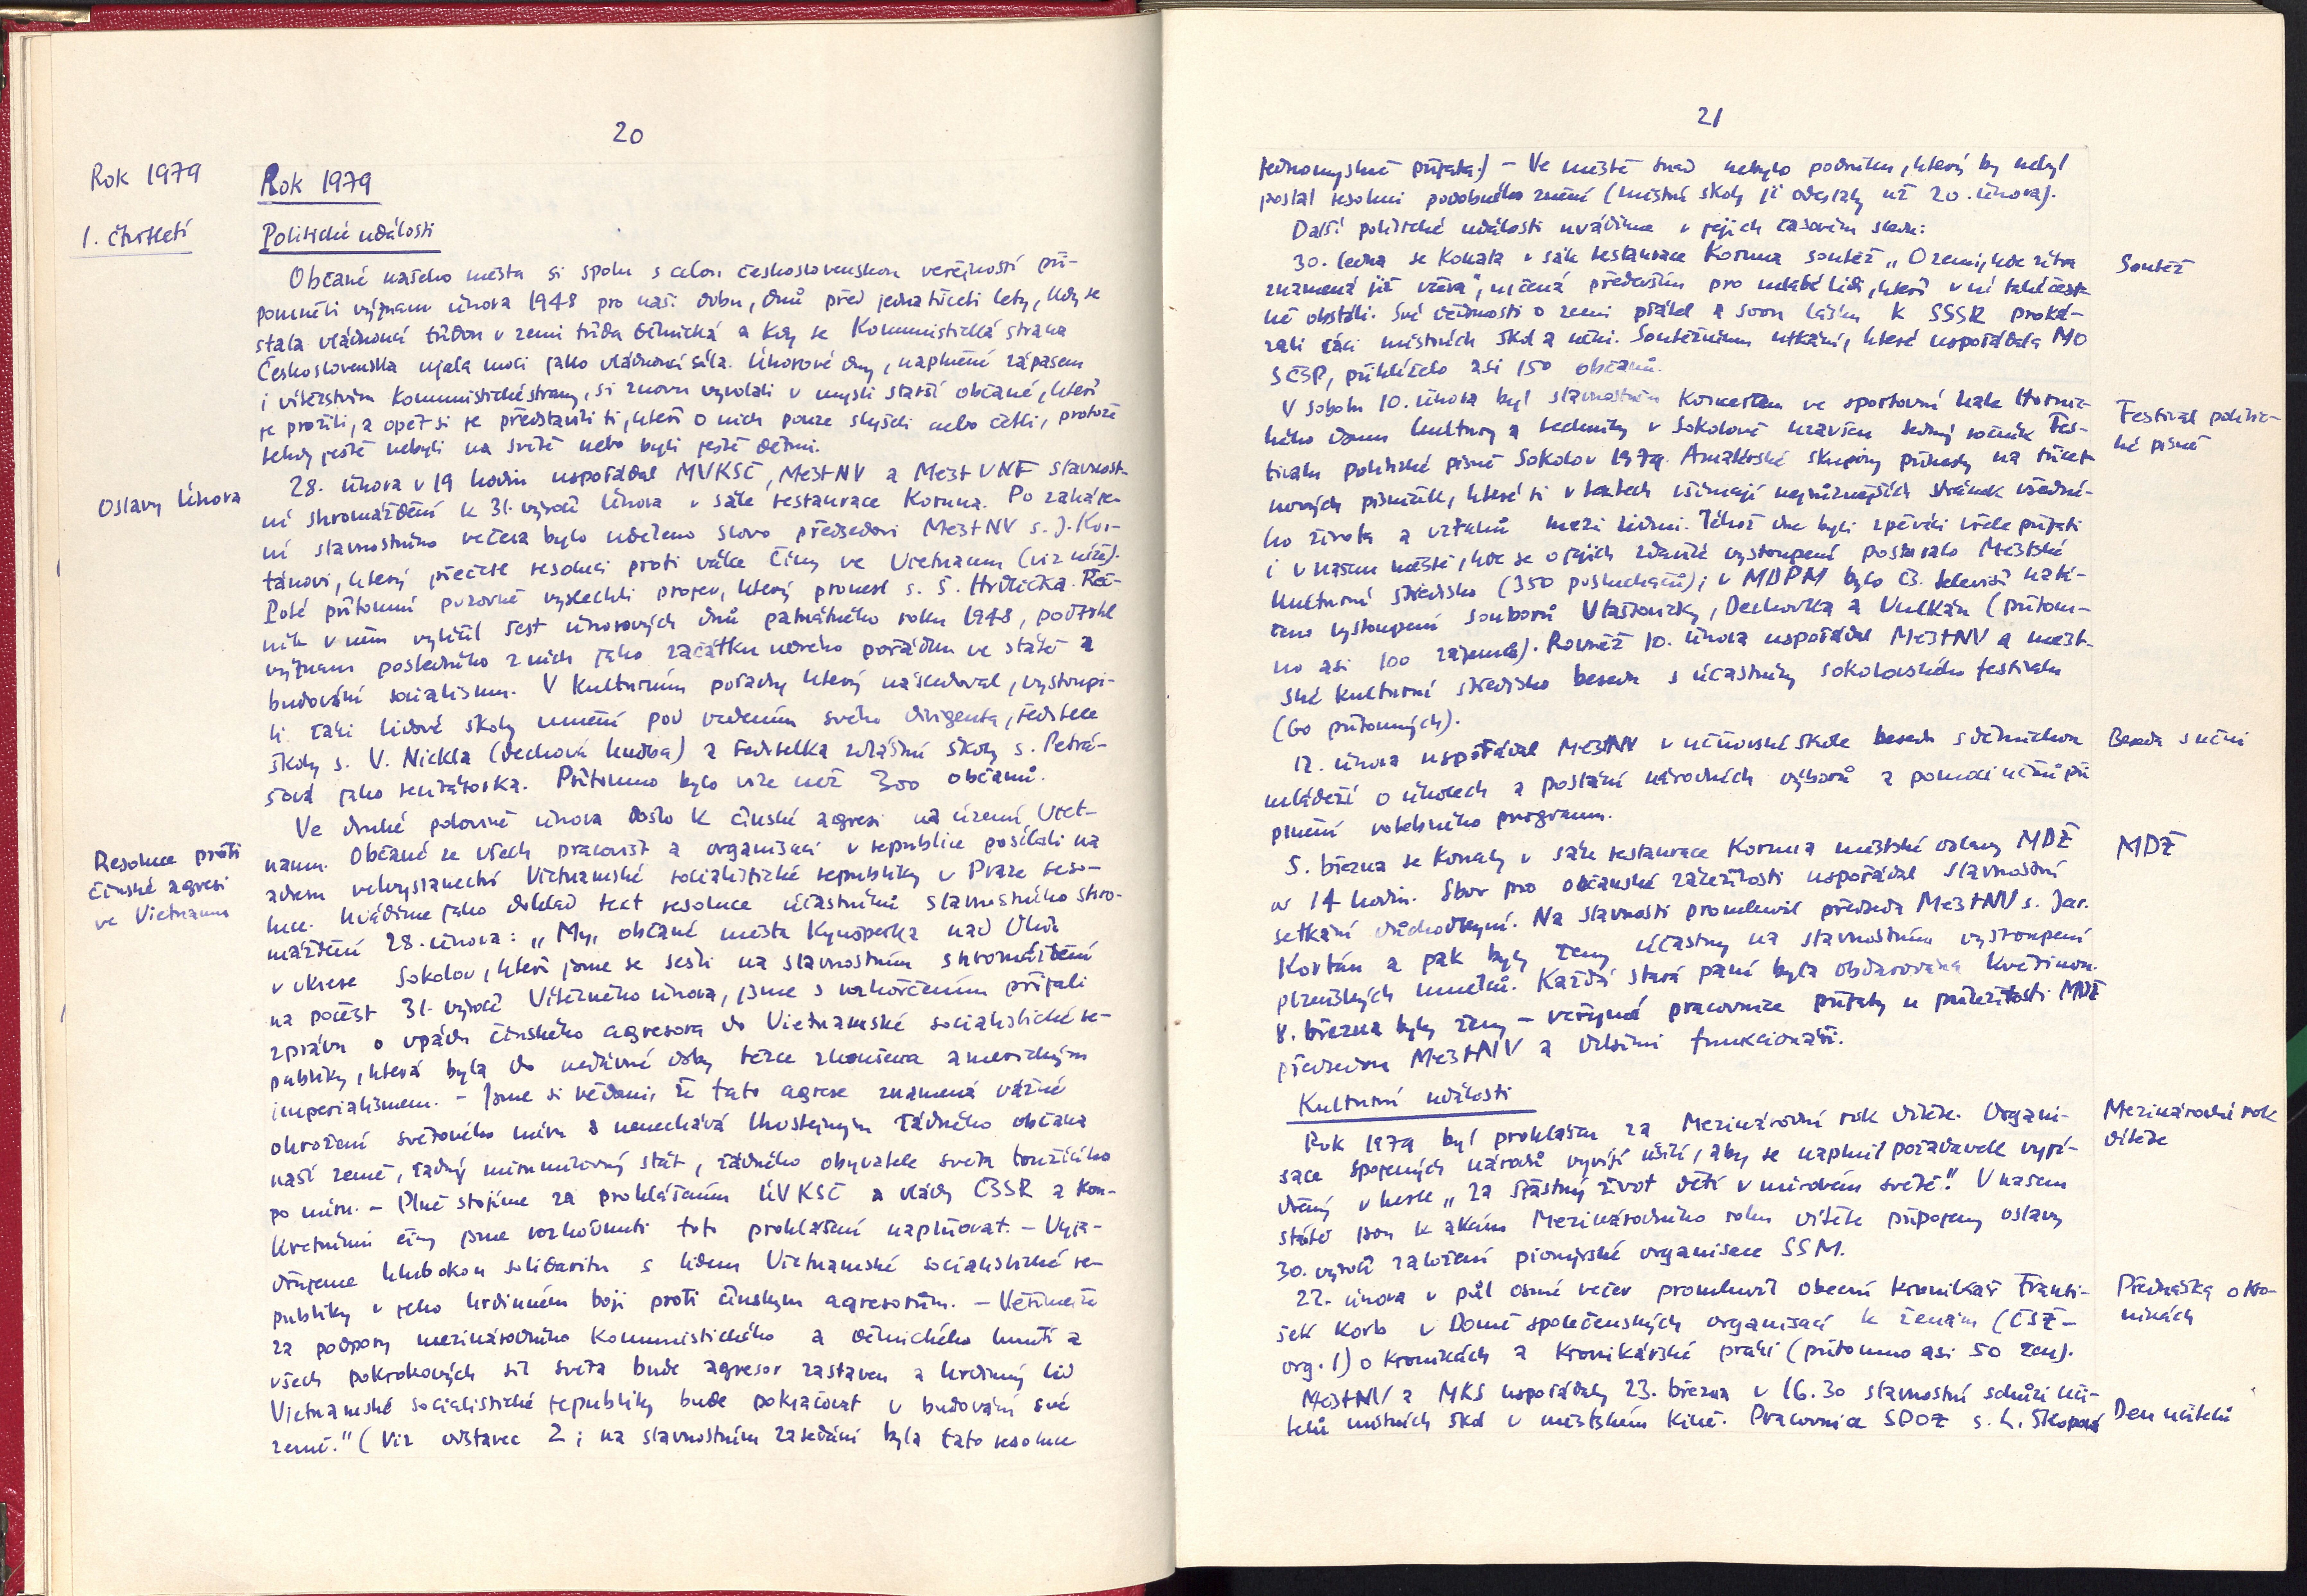 20
Rok 1979
Rok 1979
1. čtvrtletí
Politické události
Občané našeho města si spolu s celou československou veřejností při-
pomněli význam února 1948 pro naši dobu, dnů před jednatřiceti lety, kdy se
stala vládnoucí třídou v zemi třída dělnická a kdy se Komunistická strana
Československa ujala moci jako vládnoucí síla. Únorové dny, naplněné zápasem
i vítězstvím Komunistické strany, si znovu vyvolali v mysli starší občané, kteří
je prožili, a opět si je představili ti, kteří o nich pouze slyšeli nebo četli, protože
tehdy ještě nebyli na světě nebo byli ještě dětmi.
Oslavy února
28. února v 19 hodin uspořádal MVKSČ, MěstNV a MěstVNF slavnost-
ní shromáždění k 31. výročí Února v sále restaurace Koruna. Po zaháje-
ní slavnostního večera bylo uděleno slovo předsedovi MěstNV s. J. Kor-
tánovi, který přečetl resoluci proti válce Číny ve Vietnamu (viz níže).
Poté přítomní pozorně vyslechli projev, který pronesl s. S. Hrdlička. Řeč-
ník v něm vylíčil šest únorových dnů památného roku 1948, podtrhl
význam posledního z nich jako začátku nového pořádku ve státě a
budování socialismu. V kulturním pořadu, který následoval, vystoupi-
li žáci lidové školy umění pod vedením svého dirigenta, ředitele
školy s. V. Nickla (dechová hudba) a ředitelka zvláštní školy s. Petrá-
šová jako recitátorka. Přítomno bylo více než 300 občanů.
Resoluce proti
čínské agresi
ve Vietnamu
Ve druhé polovině února došlo k čínské agresi na území Viet-
namu. Občané ze všech pracovišť a organisací v republice posílali na
adresu velvyslanectví Vietnamské socialistické republiky v Praze reso-
luce. Uvádíme jako doklad text resoluce účastníků slavnostního shro-
máždění 28. února: „My, občané města Kynšperka nad Ohří
v okrese Sokolov, kteří jsme se sešli na slavnostním shromáždění
na počest 31. výročí Vítězného února, jsme s rozhořčením přijali
zprávu o vpádu čínského agresora do Vietnamské socialistické re-
publiky, která byla do nedávné doby těžce zkoušena americkým
imperialismem. - Jsme si vědomi, že tato agrese znamená vážné
ohrožení světového míru a nenechává lhostejným žádného občana
naší země, žádný mírumilovný stát, žádného obyvatele světa toužícího
po míru. - Plně stojíme za prohlášením ÚV KSČ a vlády ČSSR a kon-
kretními činy jsme rozhodnuti toto prohlášení naplňovat. - Vyja-
dřujeme hlubokou solidaritu s lidem Vietnamské socialistické re-
publiky v jeho hrdinném boji proti čínským agresorům. - Věříme, že
za podpory mezinárodního komunistického a dělnického hnutí a
všech pokrokových sil světa bude agresor zastaven a hrdinný lid
Vietnamské socialistické republiky bude pokračovat v budování své
země." (Viz odstavec 2; na slavnostním zasedání byla tato resoluce
21
jednomyslně přijata.) - Ve městě snad nebylo podniku, který by nebyl
poslal resoluci podobného znění (místní školy je odeslaly už 20. února).
Další politické události uvádíme v jejich časovém sledu:
Soutěž
30. ledna se konala v sále restaurace Koruna soutěž „O zemi, kde zítra
znamená již včera", určená především pro mladé lidi, kteří v ní také čest-
ně obstáli. Své vědomosti o zemi přátel a svou lásku k SSSR proká-
zali žáci místních škol a učni. Soutěžnímu utkání, které uspořádala MO
SČSP, přihlíželo asi 150 občanů.
Festival politic-
ké písně
V sobotu 10. února byl slavnostním koncertem ve sportovní hale Hornic-
kého domu kultury a techniky v Sokolově uzavřen sedmý ročník Fes-
tivalu politické písně Sokolov 1979. Amatérské skupiny přinesly na třicet
nových písniček, které si v textech všímají nejrůznějších stránek všední-
ho života a vztahů mezi lidmi. Téhož dne byli zpěváci vřele přijati
i v našem městě, kde se o jejich zdařilé vystoupení postaralo Městské
kulturní středisko (350 posluchačů); v MDPM bylo čs. televisí natá-
čeno vystoupení souborů Vlaštovičky, Dechovka a Vulkán (přítom-
no asi 100 zájemců). Rovněž 10. února uspořádal MěstNV a měst-
ské kulturní středisko besedu s účastníky sokolovského festivalu
(60 přítomných).
Beseda s učni
12. února uspořádal MěstNV v učňovské škole besedu s dělnickou
mládeží o úkolech a poslání národních výborů a pomoci učňů při
plnění volebního programu.
MDŽ
5. března se konaly v sále restaurace Koruna městské oslavy MDŽ
ve 14 hodin. Sbor pro občanské záležitosti uspořádal slavnostní
setkání důchodkyní. Na slavnosti promluvil předseda MěstNV s. Jar.
Kortán a pak byly ženy účastny na slavnostním vystoupení
plzeňských umělců. Každá stará paní byla obdarována květinou.
8. března byly ženy - veřejné pracovnice přijaty u příležitosti MDŽ
předsedou MěstNV a dalšími funkcionáři.
Kulturní události
Mezinárodní rok
dítěte
Rok 1979 byl prohlášen za Mezinárodní rok dítěte. Organi-
sace spojených národů vyvíjí úsilí, aby se naplnil požadavek vyjá-
dřený v hesle „Za šťastný život dětí v mírovém světě." V našem
státě jsou k akcím Mezinárodního roku dítěte připojeny oslavy
30. výročí založení pionýrské organisace SSM.
Přednáška o kro-
nikách
22. února v půl osmé večer promluvil obecní kronikář Franti-
šek Korb v Domě společenských organisací k ženám (ČSŽ -
org. 1) o kronikách a kronikářské práci (přítomno asi 50 žen).
Den učitelů
MěstNV a MKS uspořádaly 23. března v 16.30 slavnostní schůzi uči-
telů místních škol v městském kině. Pracovnice SPOZ s. L. Škopová